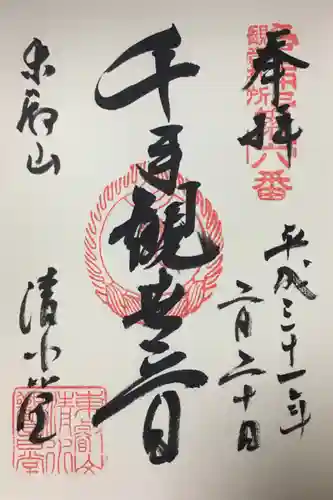 奉拝
平成三十一年
二月二十日
千手観世音
東叡山
清水堂
観音札所第六番
東叡山
清水
観音堂